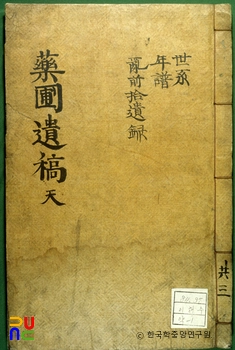 世系
年譜
亂前拾遺錄
藥圃遺稿 天
共三
© 한국학중앙연구원